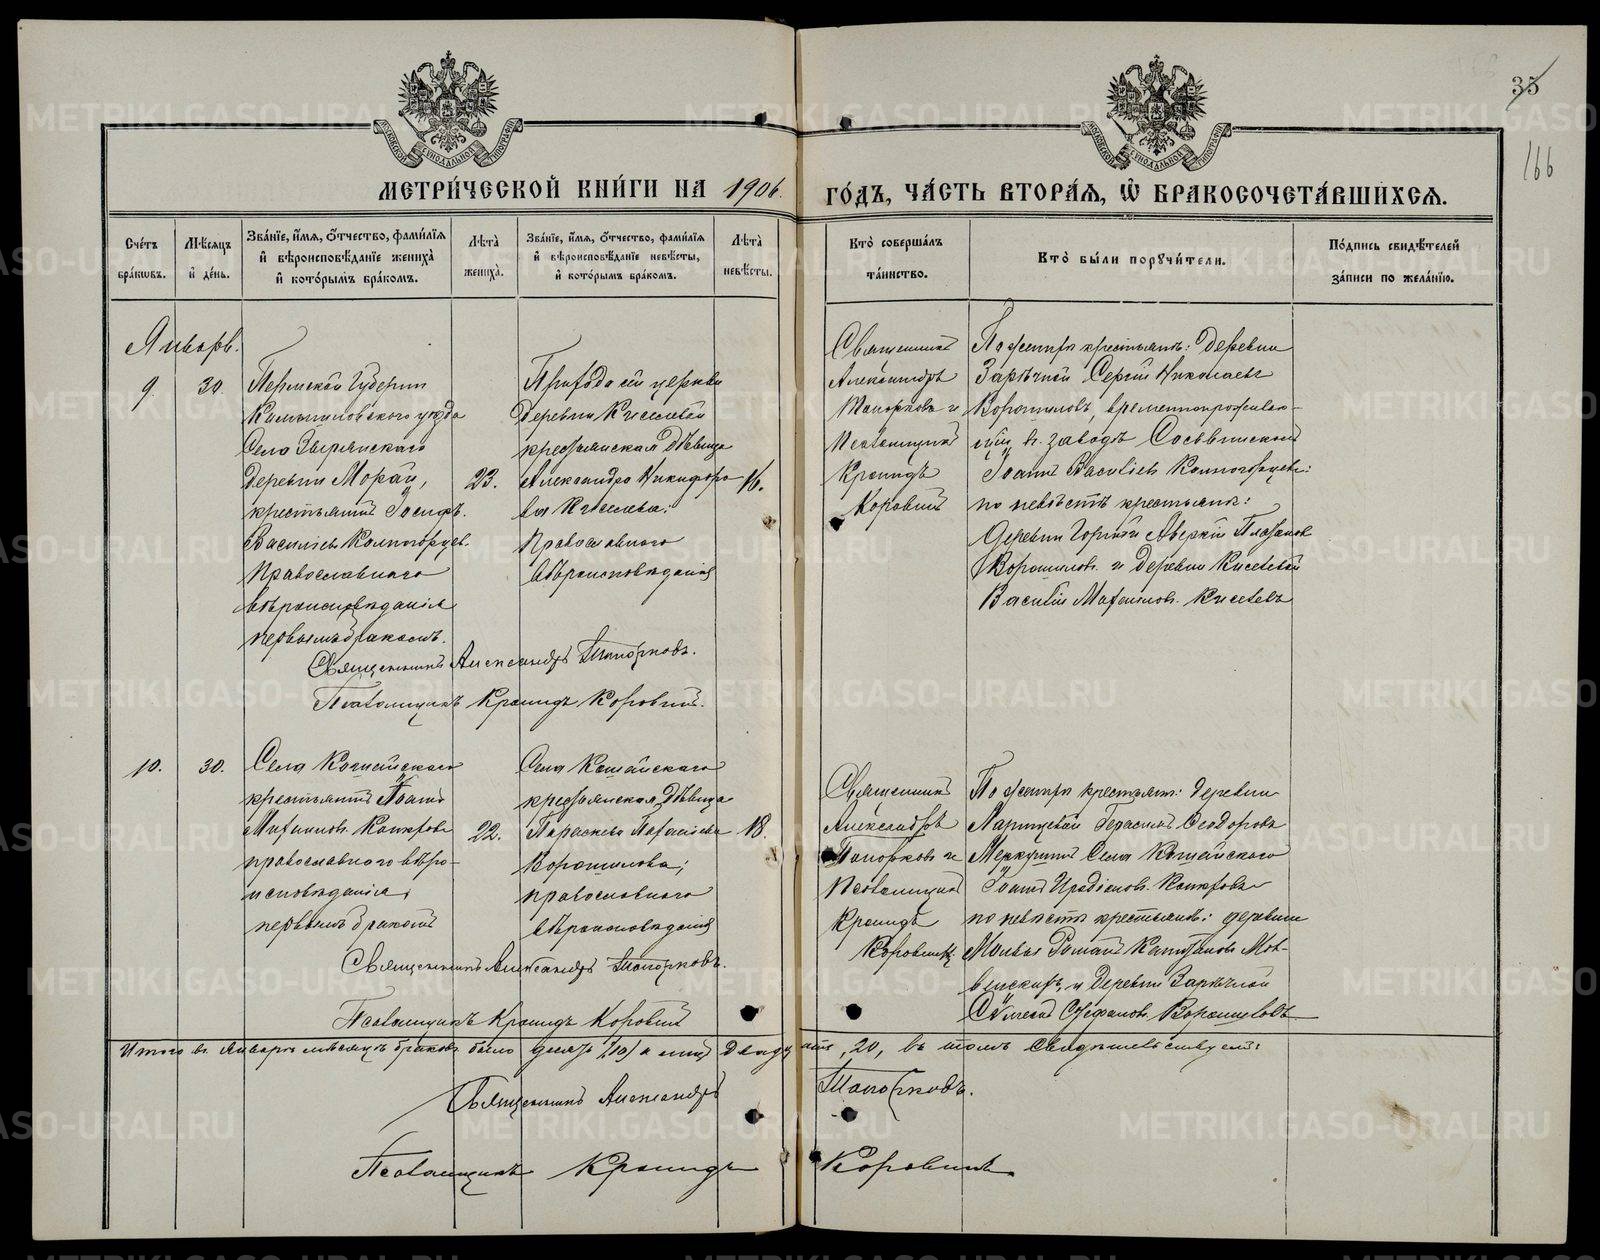 35
166
МЕТРИ́ЧЕСКОЙ КНИ́ГИ НА 1906 ГО́ДЪ, ЧА́СТЬ ВТОРА́Я, Ѡ БРАКОСОЧЕТА́ВШИХСЯ.
Сче́тъ бра́ковъ.
Мѣ́сяцъ и де́нь.
Зва́нїе, и́мя, о́тчество, фами́лїя и вѣроисповѣ́данїе жениха̀ и кото́рымъ бра́комъ.
Лѣ́та жениха̀.
Зва́нїе, и́мя, о́тчество, фами́лїя и вѣроисповѣ́данїе невѣ́сты, и кото́рымъ бра́комъ.
Лѣ́та невѣ́сты.
Кто̀ соверша́лъ та́инство.
Кто̀ бы́ли порꙋчи́тели.
По́дпись свидѣ́телей за́писи по жела́нїю.
Январь.
9. 30.
Пермской Губернии
Камышловскаго уѣзда
Села Зырянскаго
деревни Мокрой,
крестьянинъ Iосифъ
Василiевъ Колногорцев.
Православнаго
вѣроисповѣданiя
первымъ бракомъ.
23.
Прихода сей церкви
деревни Киселевой
крестьянская дѣвица
Александра Никифоро
ва Киселева;
Православнаго
вѣроисповѣданiя
16.
Священникъ
Александръ
Топорковъ и
Псаломщикъ
Кронидъ
Коровинъ
По женихѣ крестьяне: деревни
Зарѣчной Сергiй Николаевъ
Ворошиловъ, временнопрожива-
ющiй в. заводѣ Сосьвинскомъ
Iоаннъ Василiевъ Колногорцевъ:
по невѣстѣ крестьяне:
деревни Горной Аверкiй Платонов
Ворошиловъ и деревни Киселевой
Василiй Михаиловъ Киселевъ
Священникъ Александръ Топорковъ.
Псаломщикъ Кронидъ Коровинъ.
10. 30.
Села Кошайскаго
крестьянинъ Iоаннъ
Михаиловъ
православнаго вѣро-
исповѣданiя,
первымъ бракомъ
22.
Села Кошайскаго
крестьянская дѣвица
Параскева
Ворошилова;
православнаго
вѣроисповѣданiя
18.
Священникъ
Александръ
Топорковъ и
Псаломщикъ
Кронидъ
Коровинъ
По женихѣ крестьяне: деревни
Герасимъ Ѳеодоровъ
Меркушинъ Села Кошайскаго
Iоаннъ
по невѣстѣ крестьяне: деревни
Романъ
и деревни Зарѣчной
Стефановъ Ворошиловъ
Священникъ Александръ Топорковъ.
Псаломщикъ Кронидъ Коровинъ
Итого въ Январѣ мѣсяцѣ браковъ было десять (10) а лицъ двадцать, 20, въ томъ свидѣтельствуемъ:
Священникъ Александръ Топорковъ.
Псаломщикъ Кронидъ Коровинъ
METRIKI.GASO-URAL.RU